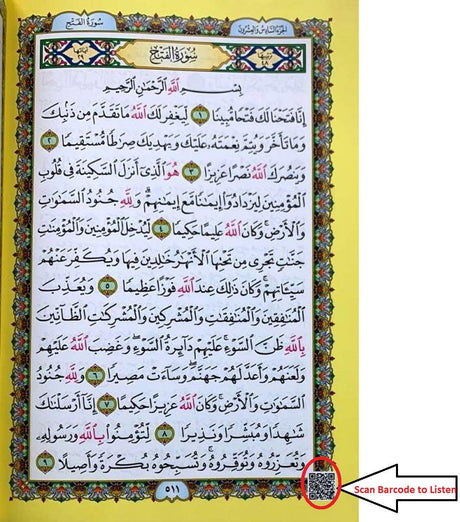 سُورَةُ الفَتْحِ
الجُزْءُ السَّادِسُ وَالعِشْرُونَ
سُورَةُ الفَتْحِ
بِسْمِ اللَّهِ الرَّحْمَٰنِ الرَّحِيمِ
إِنَّا فَتَحْنَا لَكَ فَتْحًا مُبِينًا ١ لِيَغْفِرَ لَكَ اللَّهُ مَا تَقَدَّمَ مِنْ ذَنْبِكَ
وَمَا تَأَخَّرَ وَيُتِمَّ نِعْمَتَهُ عَلَيْكَ وَيَهْدِيَكَ صِرَاطًا مُسْتَقِيمًا ٢
وَيَنْصُرَكَ اللَّهُ نَصْرًا عَزِيزًا ٣ هُوَ الَّذِي أَنْزَلَ السَّكِينَةَ فِي قُلُوبِ
الْمُؤْمِنِينَ لِيَزْدَادُوا إِيمَانًا مَعَ إِيمَانِهِمْ وَلِلَّهِ جُنُودُ السَّمَاوَاتِ
وَالْأَرْضِ وَكَانَ اللَّهُ عَلِيمًا حَكِيمًا ٤ لِيُدْخِلَ الْمُؤْمِنِينَ وَالْمُؤْمِنَاتِ
جَنَّاتٍ تَجْرِي مِنْ تَحْتِهَا الْأَنْهَارُ خَالِدِينَ فِيهَا وَيُكَفِّرَ عَنْهُمْ
سَيِّئَاتِهِمْ وَكَانَ ذَلِكَ عِنْدَ اللَّهِ فَوْزًا عَظِيمًا ٥ وَيُعَذِّبَ
الْمُنَافِقِينَ وَالْمُنَافِقَاتِ وَالْمُشْرِكِينَ وَالْمُشْرِكَاتِ الظَّانِّينَ
بِاللَّهِ ظَنَّ السَّوْءِ عَلَيْهِمْ دَائِرَةُ السَّوْءِ وَغَضِبَ اللَّهُ عَلَيْهِمْ
وَلَعَنَهُمْ وَأَعَدَّ لَهُمْ جَهَنَّمَ وَسَاءَتْ مَصِيرًا ٦ وَلِلَّهِ جُنُودُ
السَّمَاوَاتِ وَالْأَرْضِ وَكَانَ اللَّهُ عَزِيزًا حَكِيمًا ٧ إِنَّا أَرْسَلْنَاكَ
شَاهِدًا وَمُبَشِّرًا وَنَذِيرًا ٨ لِتُؤْمِنُوا بِاللَّهِ وَرَسُولِهِ
وَتُعَزِّرُوهُ وَتُوَقِّرُوهُ وَتُسَبِّحُوهُ بُكْرَةً وَأَصِيلًا ٩
٥١١
Scan Barcode to Listen